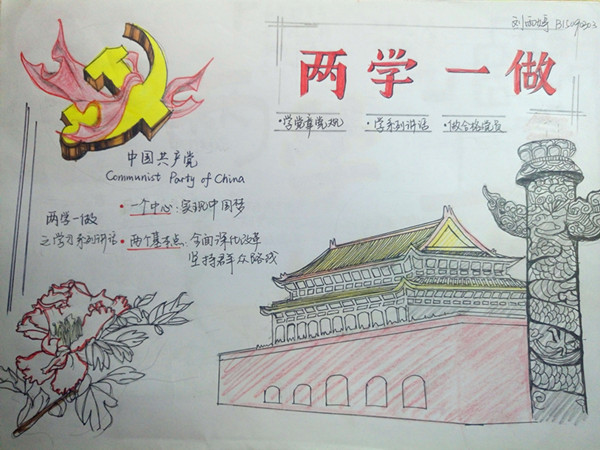 刘雨婷 B1509303
两学一做
·学党章党规 ·学系列讲话 ·做合格党员
中国共产党
Communist Party of China
两学一做
之学习系列讲话
·一个中心:实现中国梦
·两个基本点:全面深化改革
坚持群众路线